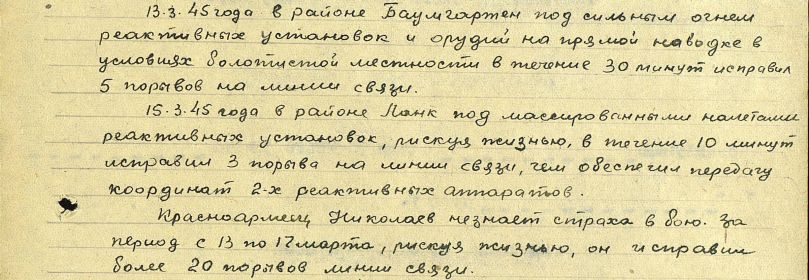 13.3.45 года в районе Баумгартен под сильным огнем
реактивных установок и орудий на прямой наводке в
условиях болотистой местности в течение 30 минут исправил
5 порывов на линии связи.
15.3.45 года в районе Ланк под массированными налетами
реактивных установок, рискуя жизнью, в течение 10 минут
исправил 3 порыва на линии связи, чем обеспечил передачу
координат 2-х реактивных аппаратов.
Красноармеец Николаев незнает страха в бою. За
период с 13 по 17 марта, рискуя жизнью, он исправил
более 20 порывов линии связи.